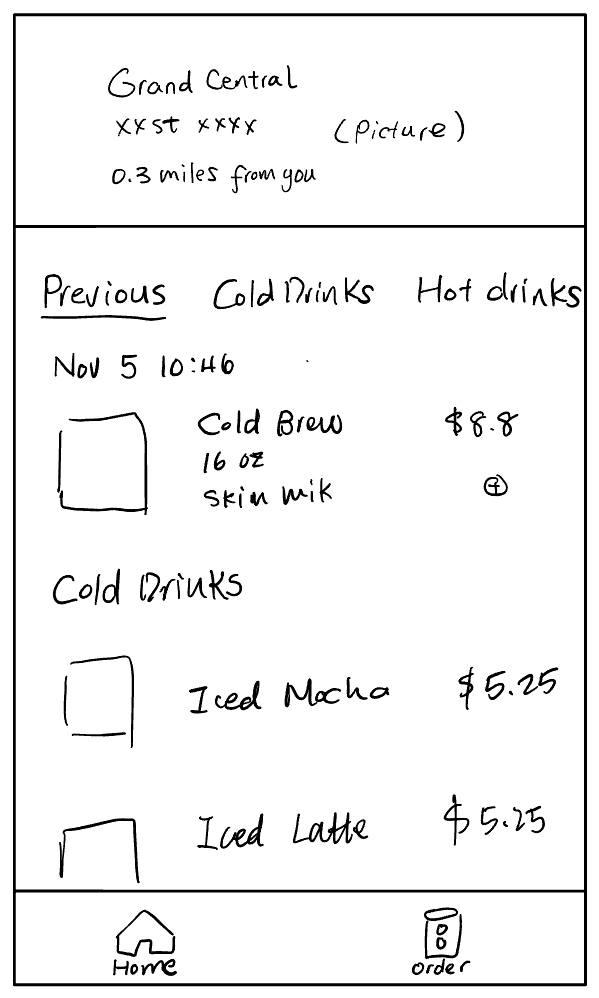 Grand Central
xxst xxxx
(Picture)
0.3 miles from you
Previous Cold Drinks Hot drinks
Nov 5 10:46
Cold Brew $8.8
16 oz
skim mik
Cold Drinks
Iced Mocha $5.25
Iced Latte $5.25
Home order